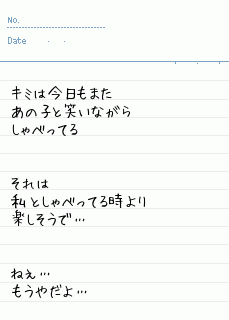 No.
Date . .
キミは今日もまた
あの子と笑いながら
しゃべってる
それは
私としゃべってる時より
楽しそうで…
ねぇ…
もうやだよ…